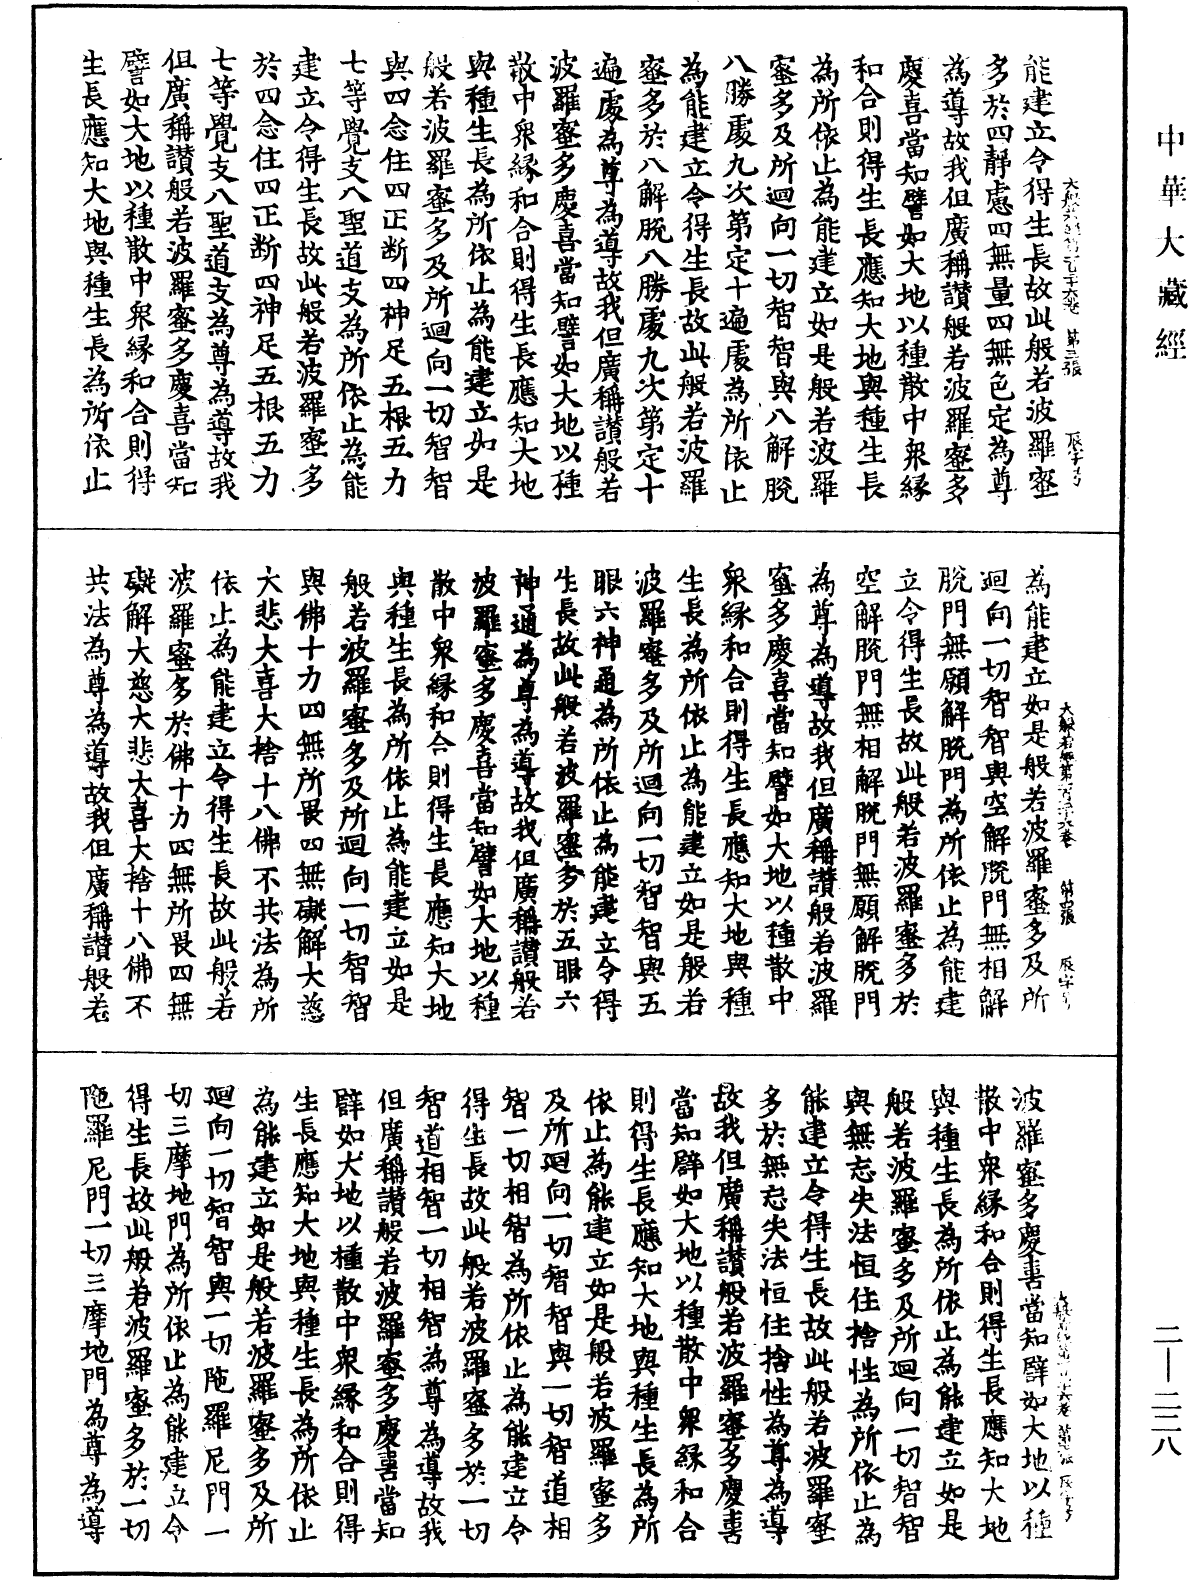 中華大藏經
能建立令得生長故此般若波羅蜜
多於四靜慮四無量四無色定為尊
為導故我但廣稱讚般若波羅蜜多
慶喜當知譬如大地以種散中衆緣
和合則得生長應知大地與種生長
為所依止為能建立如是般若波羅
蜜多及所迴向一切智智與八解脫
八勝處九次第定十遍處為所依止
為能建立令得生長故此般若波羅
蜜多於八解脫八勝處九次第定十
遍處為尊為導故我但廣稱讚般若
波羅蜜多慶喜當知譬如大地以種
散中衆緣和合則得生長應知大地
與種生長為所依止為能建立如是
般若波羅蜜多及所迴向一切智智
與四念住四正斷四神足五根五力
七等覺支八聖道支為所依止為能
建立令得生長故此般若波羅蜜多
於四念住四正斷四神足五根五力
七等覺支八聖道支為尊為導故我
但廣稱讚般若波羅蜜多慶喜當知
譬如大地以種散中衆緣和合則得
生長應知大地與種生長為所依止
為能建立如是般若波羅蜜多及所
迴向一切智智與空解脫門無相解
脫門無願解脫門為所依止為能建
立令得生長故此般若波羅蜜多於
空解脫門無相解脫門無願解脫門
為尊為導故我但廣稱讚般若波羅
蜜多慶喜當知譬如大地以種散中
衆緣和合則得生長應知大地與種
生長為所依止為能建立如是般若
波羅蜜多及所迴向一切智智與五
眼六神通為所依止為能建立令得
生長故此般若波羅蜜多於五眼六
神通為尊為導故我但廣稱讚般若
波羅蜜多慶喜當知譬如大地以種
散中衆緣和合則得生長應知大地
與種生長為所依止為能建立如是
般若波羅蜜多及所迴向一切智智
與佛十力四無所畏四無礙解大慈
大悲大喜大捨十八佛不共法為所
依止為能建立令得生長故此般若
波羅蜜多於佛十力四無所畏四無
礙解大慈大悲大喜大捨十八佛不
共法為尊為導故我但廣稱讚般若
波羅蜜多慶喜當知譬如大地以種
散中衆緣和合則得生長應知大地
與種生長為所依止為能建立如是
般若波羅蜜多及所迴向一切智智
與無忘失法恒住捨性為所依止為
能建立令得生長故此般若波羅蜜
多於無忘失法恒住捨性為尊為導
故我但廣稱讚般若波羅蜜多慶喜
當知譬如大地以種散中衆緣和合
則得生長應知大地與種生長為所
依止為能建立如是般若波羅蜜多
及所迴向一切智智與一切智道相
智一切相智為所依止為能建立令
得生長故此般若波羅蜜多於一切
智道相智一切相智為尊為導故我
但廣稱讚般若波羅蜜多慶喜當知
譬如大地以種散中衆緣和合則得
生長應知大地與種生長為所依止
為能建立如是般若波羅蜜多及所
迴向一切智智與一切陁羅尼門一
切三摩地門為所依止為能建立令
得生長故此般若波羅蜜多於一切
陁羅尼門一切三摩地門為尊為導
二—二二八